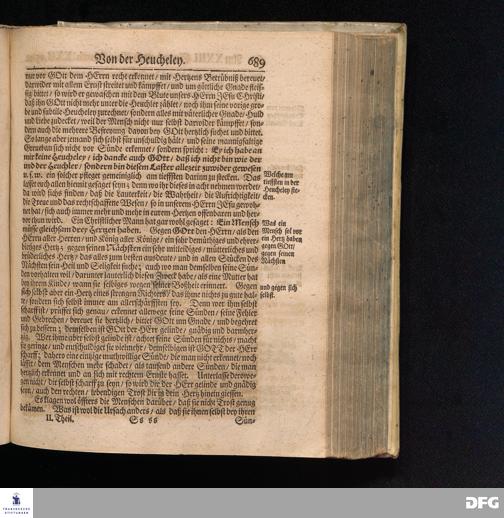 Von der Heucheley. 689
nur vor GOtt dem HErrn recht erkennet / mit Hertzens Betrübniß bereuet /
darwider mit allem Ernst streitet und kämpffet / und um göttliche Gnade fleis-
sig bittet / so wird er gewaschen mit dem Blute unsers HErrn JEsu Christi /
daß ihn GOtt nicht mehr unter die Heuchler zählet / noch ihm seine vorige gro-
be und subtile Heucheley zurechnet / sondern alles mit väterlicher Gnade / Huld
und Liebe zudecket / weil der Mensch nicht nur selbst darwider kämpffet / son-
dern auch die mehrere Befreyung davon bey GOtt hertzlich suchet und bittet.
So lange aber jemand sich selbst für unschuldig hält / und seine mannigfaltige
Greuel an sich nicht vor Sünde erkennet / sondern spricht: Ey ich habe an
mir keine Heucheley / ich dancke auch GOtt / daß ich nicht bin wie der
und der Heuchler / sondern bin diesem Laster allezeit zuwider gewesen
u. s. w. ein solcher pfleget gemeiniglich am tieffsten darinn zu stecken. Das
lasset euch allen hiemit gesaget seyn; denn wo ihr dieses in acht nehmen werdet /
da wird sichs finden / daß die Lauterkeit / die Wahrheit / die Aufrichtigkeit /
die Treue und das rechtschaffene Wesen / so in unserem HErrn JEsu gewoh-
net hat / sich auch immer mehr und mehr in eurem Hertzen offenbaren und her-
vor thun wird. Ein Christlicher Mann hat gar wohl gesaget: Ein Mensch
müsse gleichsam drey Hertzen haben. Gegen GOtt den HErrn / als den
HErrn aller Herren / und König aller Könige / ein sehr demüthiges und ehrer-
bietiges Hertz: gegen seinen Nächsten ein sehr mitleidiges / mütterliches und
brüderliches Hertz / das alles zum besten ausdeute / und in allen Stücken des
Nächsten sein Heil und Seligkeit suche; auch wo man demselben seine Sün-
den vorhalten will / darunter lediglich diesen Zweck habe / als eine Mutter hat
bey ihrem Kinde / wann sie selbiges wegen seiner Bosheit erinnert. Gegen
sich selbst aber ein Hertz eines strengen Richters / das ihme nichts zu gute hal-
te / sondern sich selbst immer am allerschärffsten sey. Dann wer ihm selbst
scharff ist / prüfet sich genau / erkennet allerwege seine Sünden / seine Fehler
und Gebrechen / bereuet sie hertzlich / bittet GOtt um Gnade / und begehret
sich zu bessern; demselben ist GOtt der HErr gelinde / gnädig und barmher-
tzig. Wer ihme aber selbst gelinde ist / achtet seine Sünden für nichts / macht
sie geringe / und entschuldiget sie vielmehr / demselbigen ist GOTT der HErr
scharff; dahero eine eintzige muthwillige Sünde / die man nicht erkennet / noch
lässet / dem Menschen mehr schadet / als tausend andere Sünden / die man
hertzlich erkennet und an sich mit rechtem Ernste hasset. Unterlasse derowe-
gen nicht / dir selbst scharff zu seyn / so wird dir der HErr gelinde und gnädig
seyn / auch den rechten / lebendigen Trost dir in dein Hertz hinein giessen.
Es klagen wol öffters die Menschen darüber / daß sie nicht Trost genug
bekämen. Was ist wol die Ursach anders / als daß sie ihnen selbst bey ihren
II. Theil. Ss ss Sün-
Welche am
tieffsten in der
Heucheley ste-
cken.
Was ein
Mensch für
ein Hertz haben
gegen GOtt
gegen seinen
Nächsten
und gegen sich
selbst.
FRANCKESCHE
STIFTUNGEN
DFG